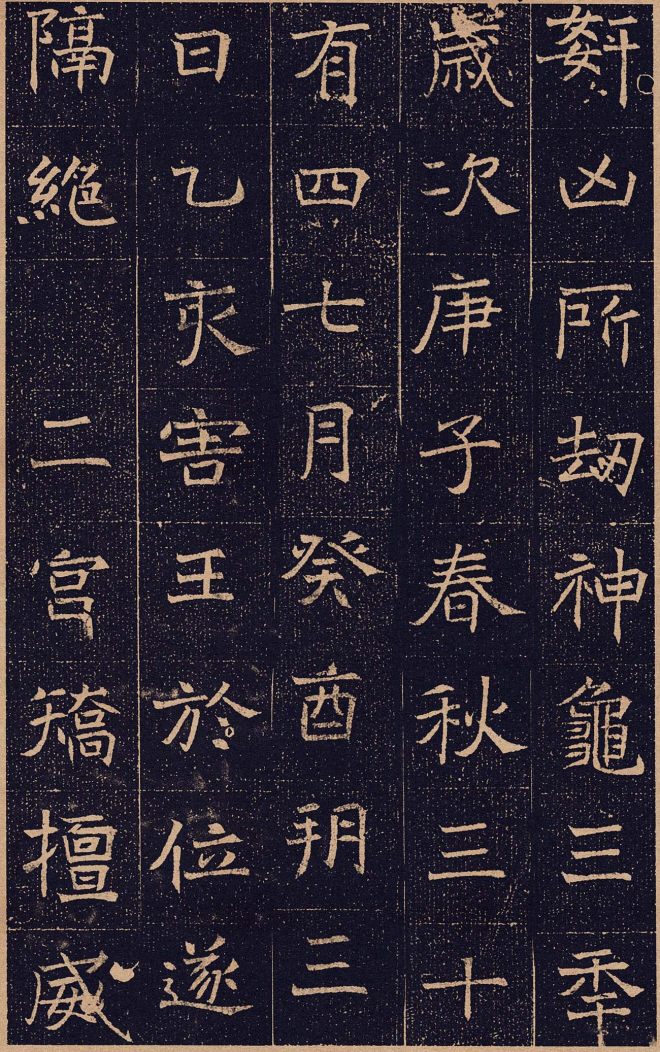 姧凶所刼神龜三秊
歲次庚子春秋三十
有四七月癸酉朔三
日乙亥害王於位遂
隔絕　二宮矯擅威